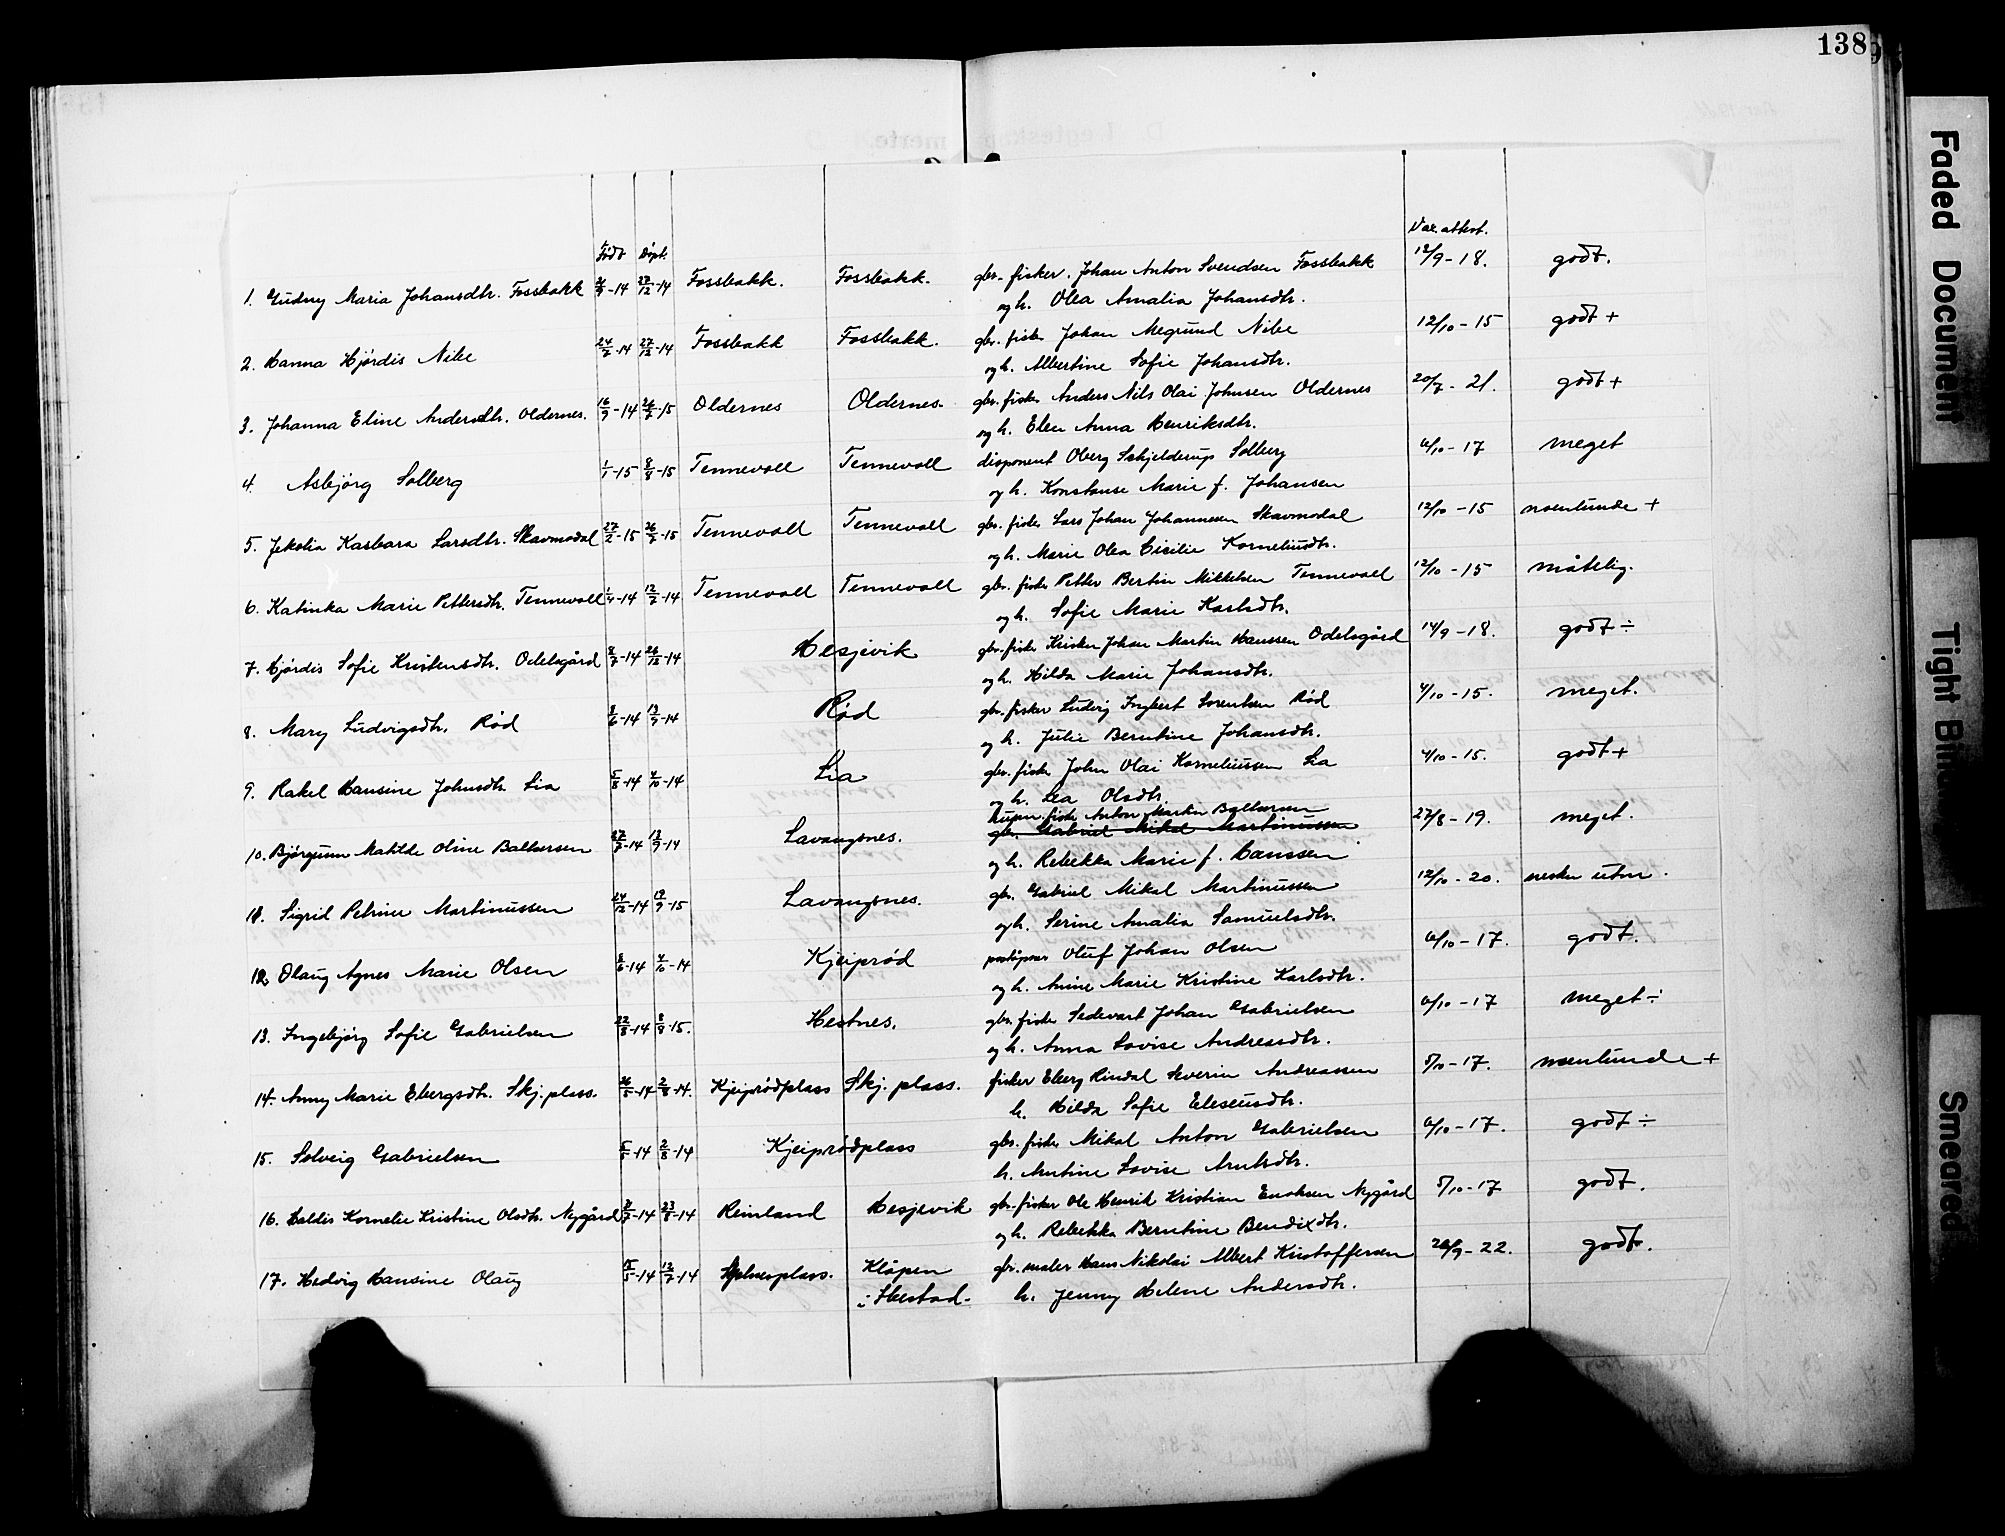 138
Født Døpt. Vac. attest.
1. Gudny Maria Johansdtr. Fossbakk -14 27/12-14 Fossbakk. Fossbakk. gbr. fisker. Johan Anton Svendsen Fossbakk 12/9-18. godt.
og h. Olea Amalia Johansdtr.
2. Hanna Hjørdis Nibe 24/7-14 27/12-14 Fossbakk Fossbakk. gbr. fisker Johan Megrund Nibe 12/10-15 godt +
og h. Albertine Sofie Johansdtr.
3. Johanna Eline Andersdtr. Oldernes. 16/9-14 26/7-15 Oldernes Oldernes. gbr. fisker Anders Nils Olai Johnsen Oldernes 20/7-21. godt +
og h. Elen Anna Henriksdtr.
4. Asbjørg Solberg 1/1-15 8/8-15 Tennevoll Tennevoll disponent Oberg Schjelderup Solberg 6/10-17 meget
og h. Konstanse Marie f. Johansen
5. Jekolia Kasbara Larsdtr. Skavmodal 27/2-15 26/7-15 Tennevoll Tennevoll gbr. fisker Lars Johan Johannesen Skavmodal 12/10-15 nogenlunde +
og h. Marie Olea Cicilie Korneliusdtr.
6. Katinka Marie Pettersdtr. Tennevoll 1/4-14 12/7-14 Tennevoll Tennevoll gbr. fisker Petter Bertin Mikkelsen Tennevoll 12/10-15 måtelig.
og h. Sofie Marie Karlsdtr.
7. Hjørdis Sofie Kristensdtr. Odelsgård 8/7-14 26/12-14 Hesjevik gbr. fisker Kristen Johan Martin Hanssen Odelsgård 14/9-18. godt ÷
og h. Hilda Marie Johansdtr.
8. Mary Ludvigsdtr. Rød 8/6-14 13/9-14 Rød gbr. fisker Ludvig Ingbert Lorentsen Rød 4/10-15. meget.
og h. Julie Berntine Johansdtr.
9. Rakel Hansine Johnsdtr. Lia 5/8-14 4/10-14 Lia gbr. fisker John Olai Korneliussen Lia 4/10-15. godt +
og h. Lea Olsdtr.
fisker Anton Martin Baltsersen
10. Bjørgunn Matilde Oline Baltsersen 27/7-14 13/9-14 Lavangsnes. gbr. Gabriel Mikal Martinussen 27/8-19. meget.
og h. Rebekka Marie f. Hanssen
11. Sigrid Petrine Martinussen 24/12-14 19/9-15 Lavangsnes. gbr. Gabriel Mikal Martinussen 12/10-20. nesten utm.
og h. Serine Amalia Samuelsdtr.
12. Olaug Agnes Marie Olsen 8/6-14 4/10-14 Kjeiprød Oluf Johan Olsen 6/10-17. godt.
og h. Anine Marie Kristine Karlsdtr.
13. Ingebjørg Sofie Gabrielsen 22/8-14 8/8-15. Hestnes. gbr. fisker Sedevart Johan Gabrielsen 6/10-17 meget ÷
og h. Anna Lovise Andreasdtr.
14. Anny Marie Ebergsdtr. Skj. plass. 26/5-14 2/8-14. Kjeiprødplass Skj. plass. fisker Eberg Rindal Severin Andreassen 5/10-17. noenlunde +
h. Hilda Sofie Eliseusdtr.
15. Solveig Gabrielsen 5/5-14 2/8-14 Kjeiprødplass gbr. fisker Mikal Anton Gabrielsen 6/10-17. godt ÷
h. Antine Lovise Arntsdtr.
16. Haldis Kornelie Kristine Olsdtr. Nygård -14 23/8-14 Reinland Hesjevik gbr. fisker Ole Henrik Kristian Enoksen Nygård 5/10-17 godt.
og h. Rebekka Berntine Bendixdtr.
17. Hedvig Hansine Olaug -14 12/7-14 Kløpen gbr. maler Hans Nikolai Albert Kristoffersen 26/9-22. godt.
i Ibestad. h. Jenny Helene Andersdtr.
Faded Document
Tight Bin
Smeared